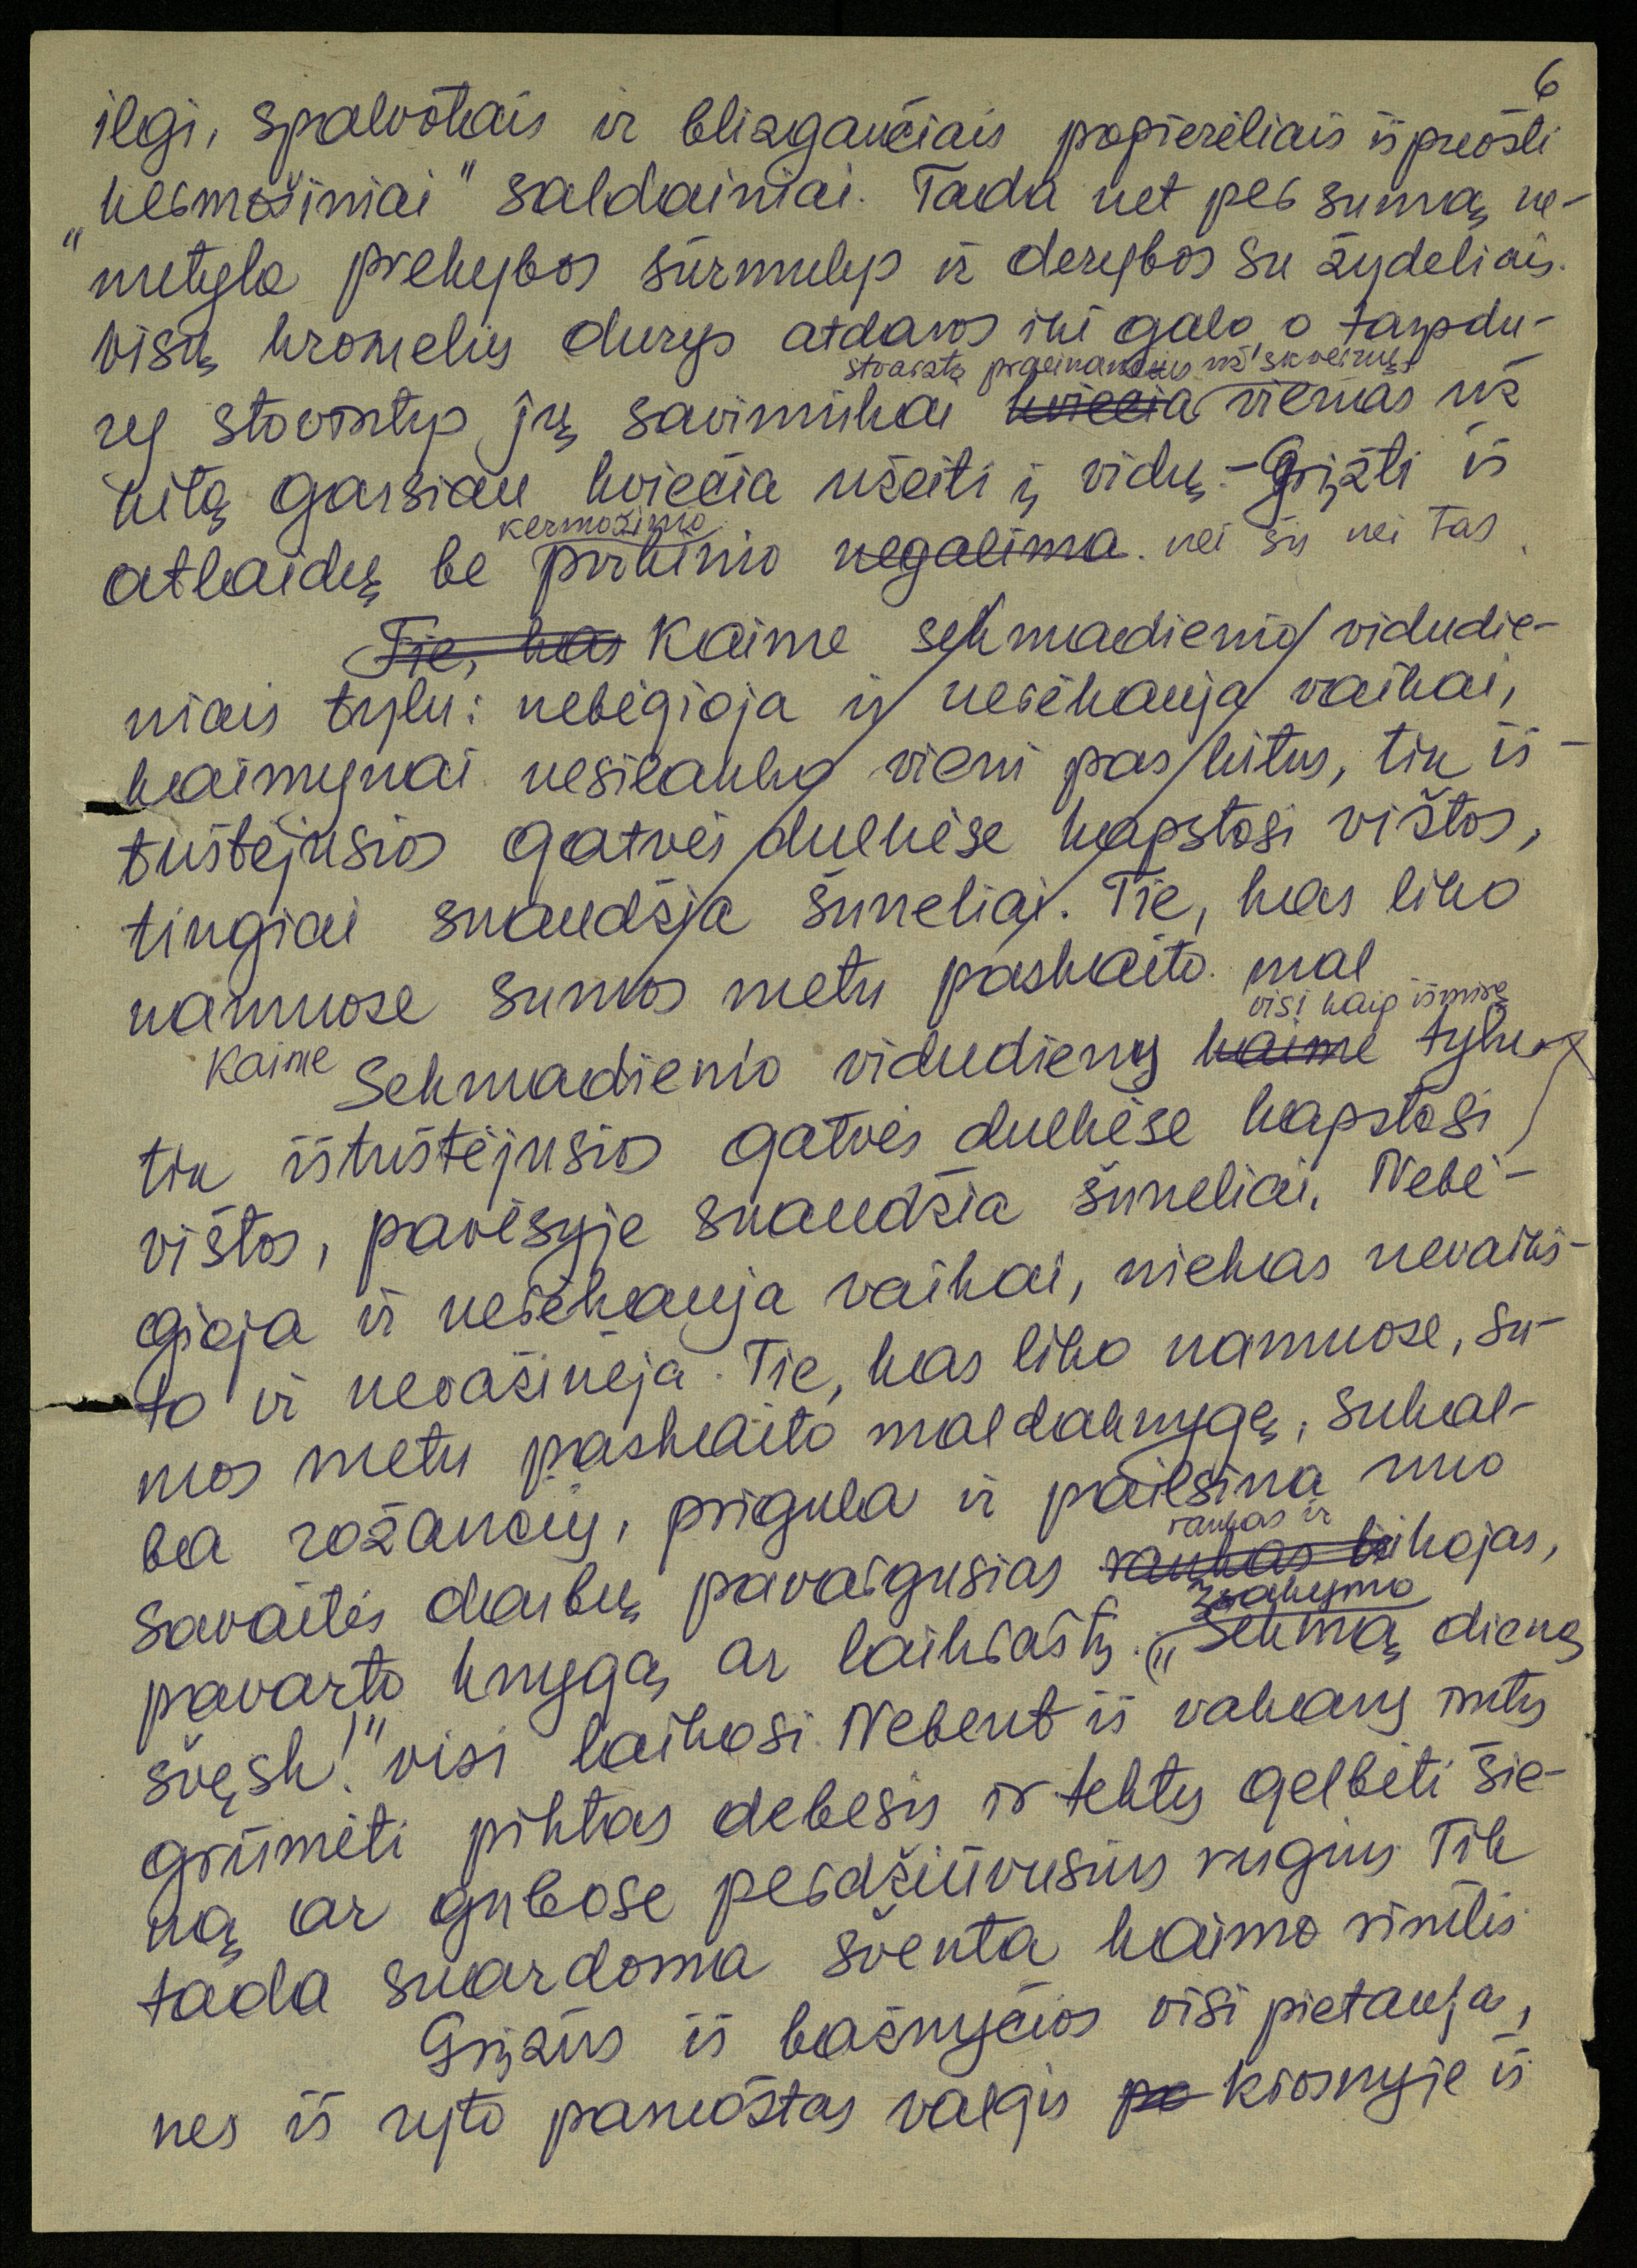 6
ilgi, spalvotais ir blizgančiais popierėliais išpuošti
„kermošiniai" saldainiai. Tada net per sumą ne-
netyla prekybos šurmulys ir derybos su žydeliais.
visų kromelių durys atdaros iki galo o tarpdu-
stvarstą praeinančius už skvernų
ry stovintys jų savininkai kviečia vienas už
kitą garsiau kviečia užeiti į vidų. – Grįžti iš
kermošinio
atlaidų be pirkinio negalima. nei šis nei tas.
Tie, kas Kaime sekmadienio vidudie-
niais tylu: nebėgioja ir nerėkauja vaikai,
kaimynai nesilanko vieni pas kitus, tik iš-
tuštėjusios gatvės dulkėse kapstosi vištos,
tingiai snaudžia šuneliai. Tie, kas liko
namuose sumos metu paskaito mal
visi kaip išmirę
Kaime Sekmadienio vidudienį kaime tylu
tik ištuštėjusios gatvės dulkėse kapstosi
vištos, pavėsyje snaudžia šuneliai. Nebė-
gioja ir nerėkauja vaikai, niekas nevaikš-
to ir nevažinėja. Tie, kas liko namuose, su-
mos metu paskaito maldaknygę, sukal-
ba rožančių, prigula ir pailsina nuo
rankas ir
savaitės darbų pavargusias rankas kojas,
įsakymo
pavarto knygą ar laikraštį. „Sekmą dieną
švęsk!" visi laikosi. Nebent iš vakarų imtų
griūmėti piktas debesis ir tektų gelbėti šie-
ną ar gubose perdžiūvusius rugius. Tik
tada suardoma šventa kaimo rimtis.
Grįžus iš bažnyčios visi pietauja,
nes iš ryto paruoštas valgis pe krosnyje iš